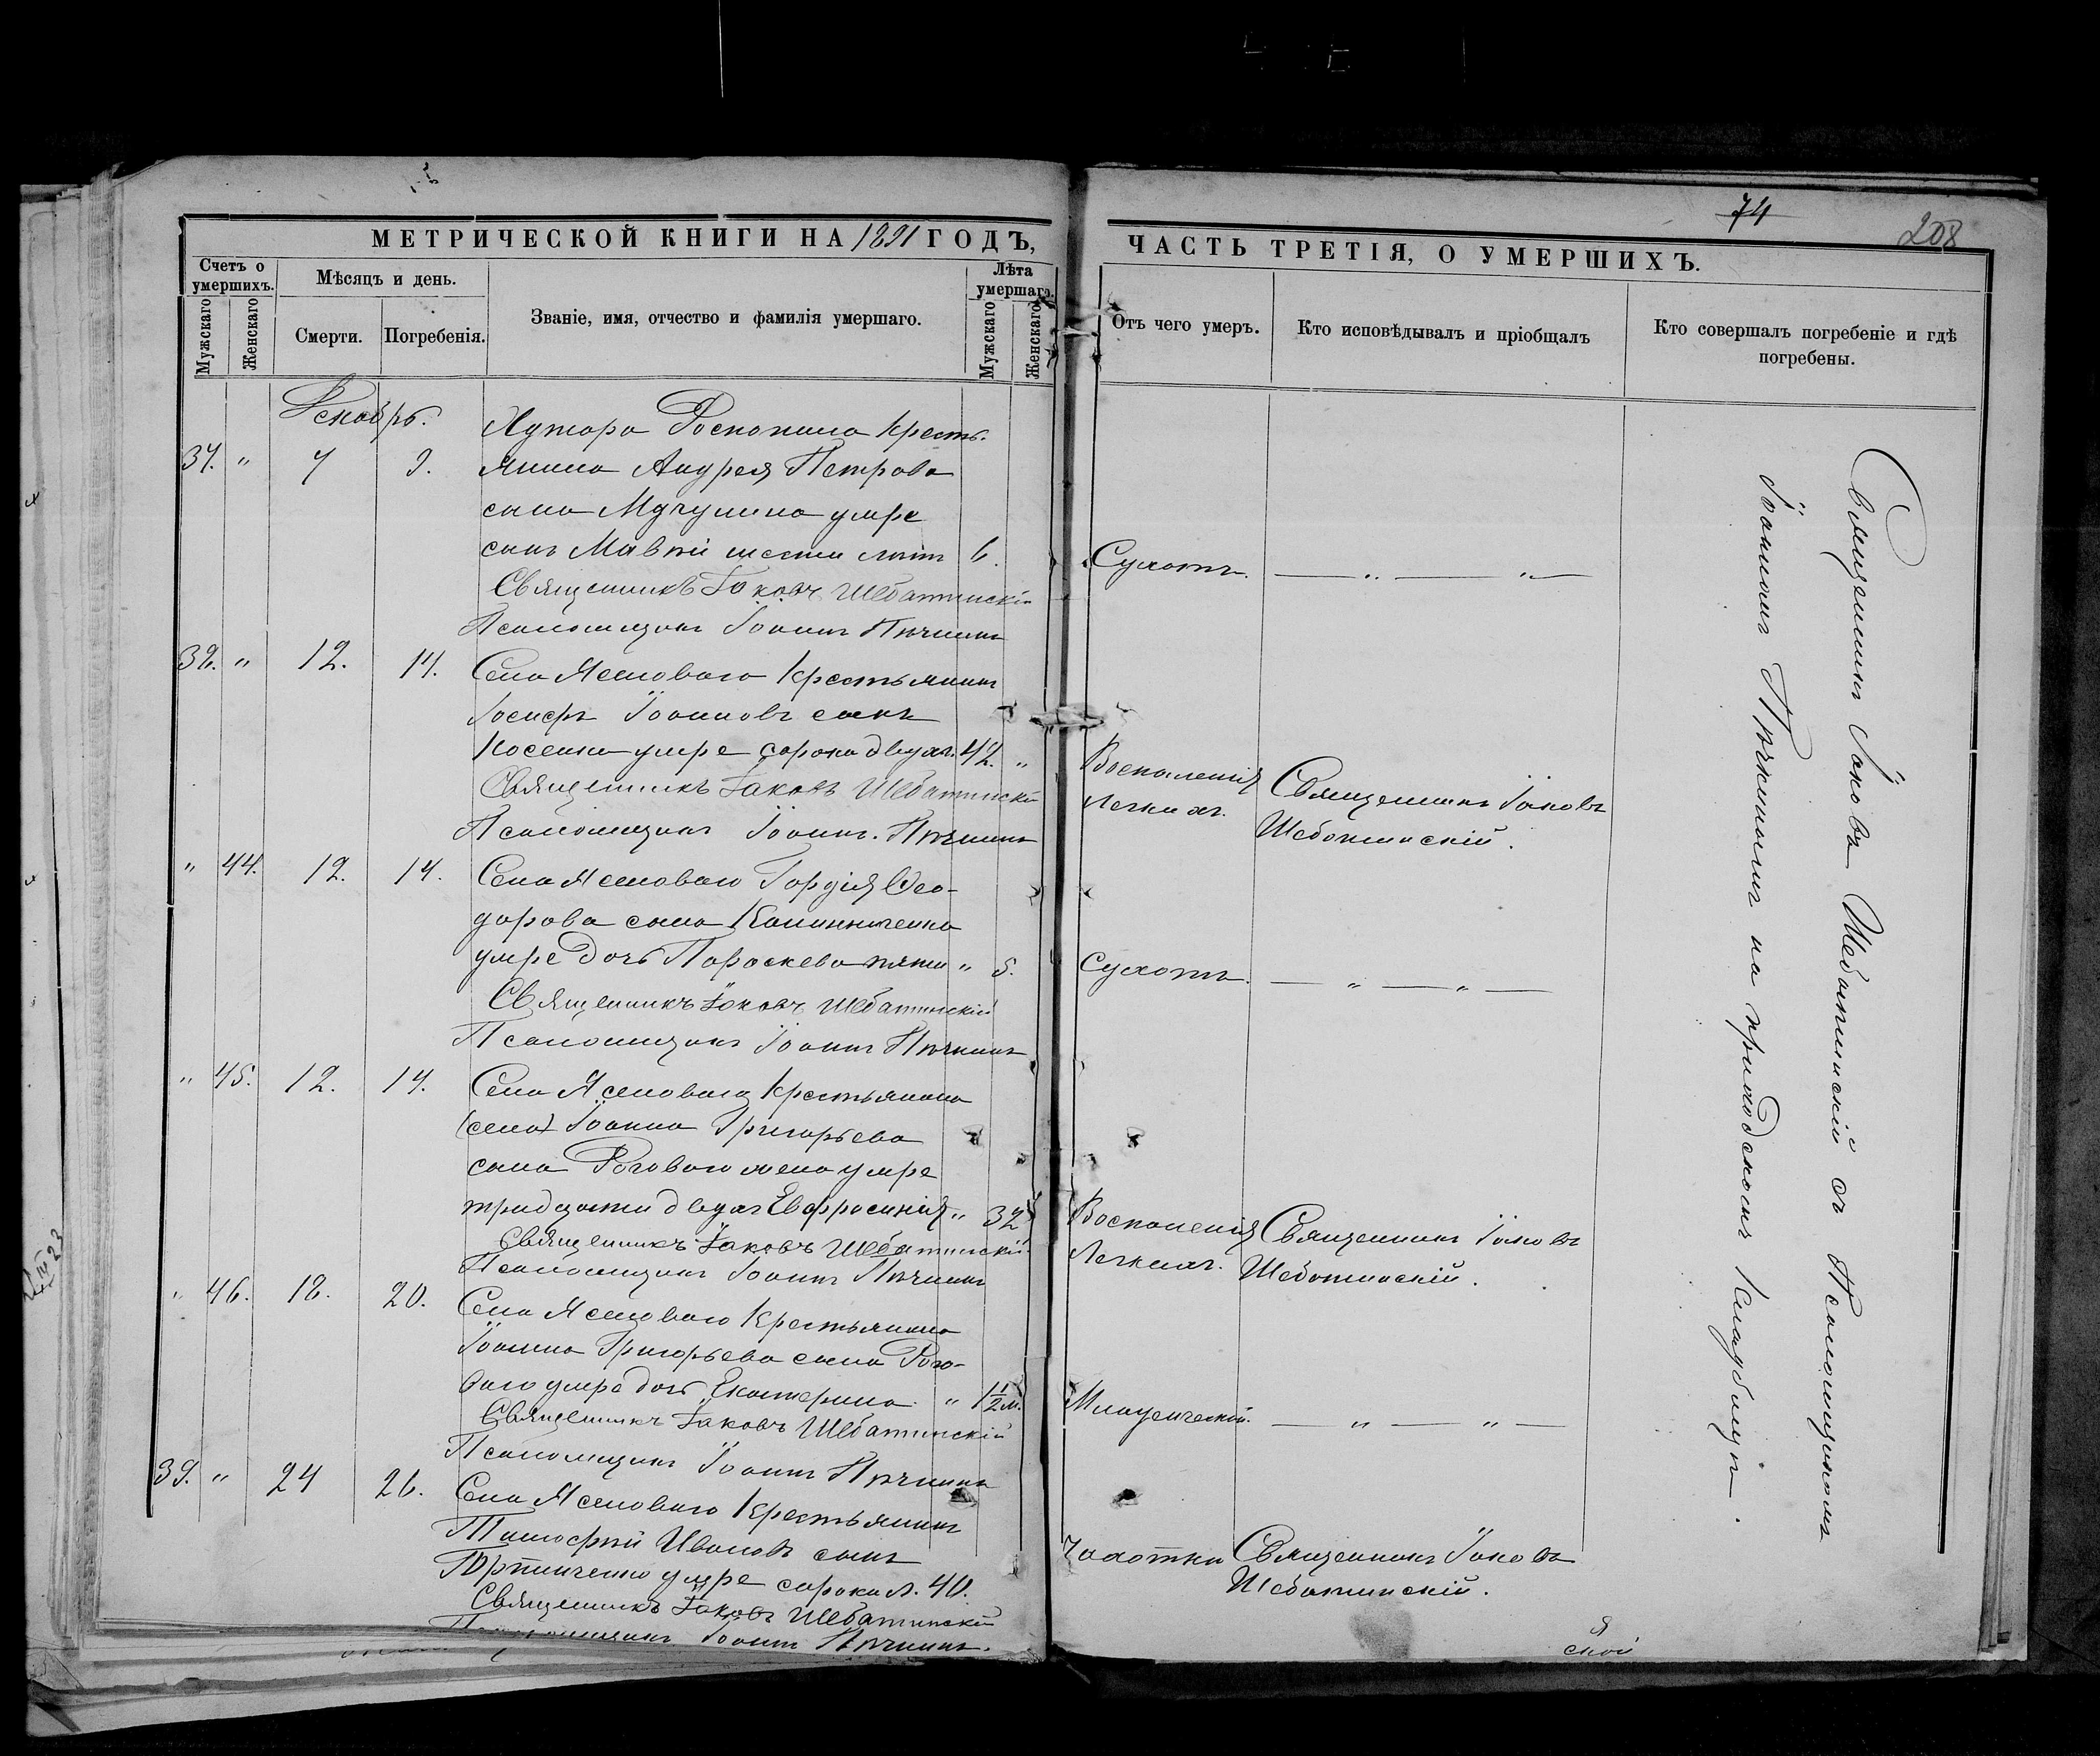 74
208
МЕТРИЧЕСКОЙ КНИГИ НА 1891 ГОДЪ,
ЧАСТЬ ТРЕТІЯ, О УМЕРШИХЪ.
Счетъ о умершихъ.
Мужскаго
Женскаго
Мѣсяцъ и день.
Смерти.
Погребенія.
Званіе, имя, отчество и фамилія умершаго.
Лѣта умершаго.
Мужскаго
Женскаго
Отъ чего умеръ.
Кто исповѣдывалъ и пріобщалъ
Кто совершалъ погребеніе и гдѣ
погребены.
Декабрь.
Хутора Роскопана Кресть-
37. " 7 9. янина Андрея Петрова
сына умре
сынъ шести лѣтъ 6.
Сухотъ. — " — " —
Священникъ Іаковъ Шебатинскій
Псаломщикъ Іоаннъ Пѣчкинъ
38. " 12. 14. Села Ясеноваго Крестьянинъ
Іосифъ Іоанновъ сынъ
Косенко умре сорока двухъ 42. "
Воспаленія
Легкихъ.
Священникъ Іаковъ
Шебатинскій.
Священникъ Іаковъ Шебатинскій
Псаломщикъ Іоаннъ Пѣчкинъ
" 44. 12. 14. Села Ясеноваго Гордія Ѳео-
дорова сына Калиниченка
умре дочь Параскева пяти " 5.
Сухотъ. — " — " —
Священникъ Іаковъ Шебатинскій
Псаломщикъ Іоаннъ Пѣчкинъ
" 45. 12. 14. Села Ясеноваго Крестьянина
(села) Іоанна Григорьева
сына Роговаго жена умре
тридцати двухъ Евфросинія " 32
Воспаленія
Легкихъ.
Священникъ Іаковъ
Шебатинскій.
Священникъ Іаковъ Шебатинскій
Псаломщикъ Іоаннъ Пѣчкинъ
" 46. 18. 20. Села Ясеноваго Крестьянина
Іоанна Григорьева сына Рого-
ваго умре дочь Екатерина " 1 1/2 м.
Младенческой. — " — " —
Священникъ Іаковъ Шебатинскій
Псаломщикъ Іоаннъ Пѣчкинъ
39. " 24 26. Села Ясеноваго Крестьянинъ
Тимофей Ивановъ сынъ
умре сорока л. 40.
Чахотки
Священникъ Іаковъ
Шебатинскій.
Священникъ Іаковъ Шебатинскій
Псаломщикъ Іоаннъ Пѣчкинъ.
Священникъ Іаковъ Шебатинскій съ Псаломщикомъ
Іоанномъ Пѣчкинымъ на приходскомъ кладбищѣ.
ской